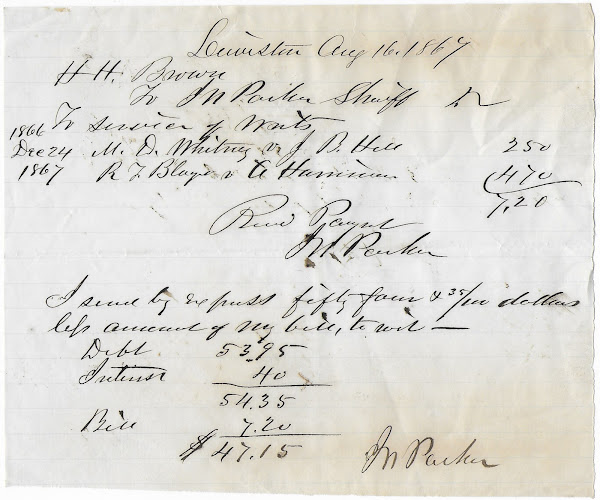 Lewiston Aug 16. 1867
H H. Brown
To J N Parker Shriff Dr
1866 To service of Writs
Dec 24 M. D. Whitney v J B. Hill 250
1867 R F v A Harriman 470
7.20
Recd Paymt
J N Parker
I send by express fifty four & 35/100 dollars
less amount of my bill, to wit —
Debt 53.95
Interest 40
54.35
Bill 7.20
$ 47.15
J N Parker